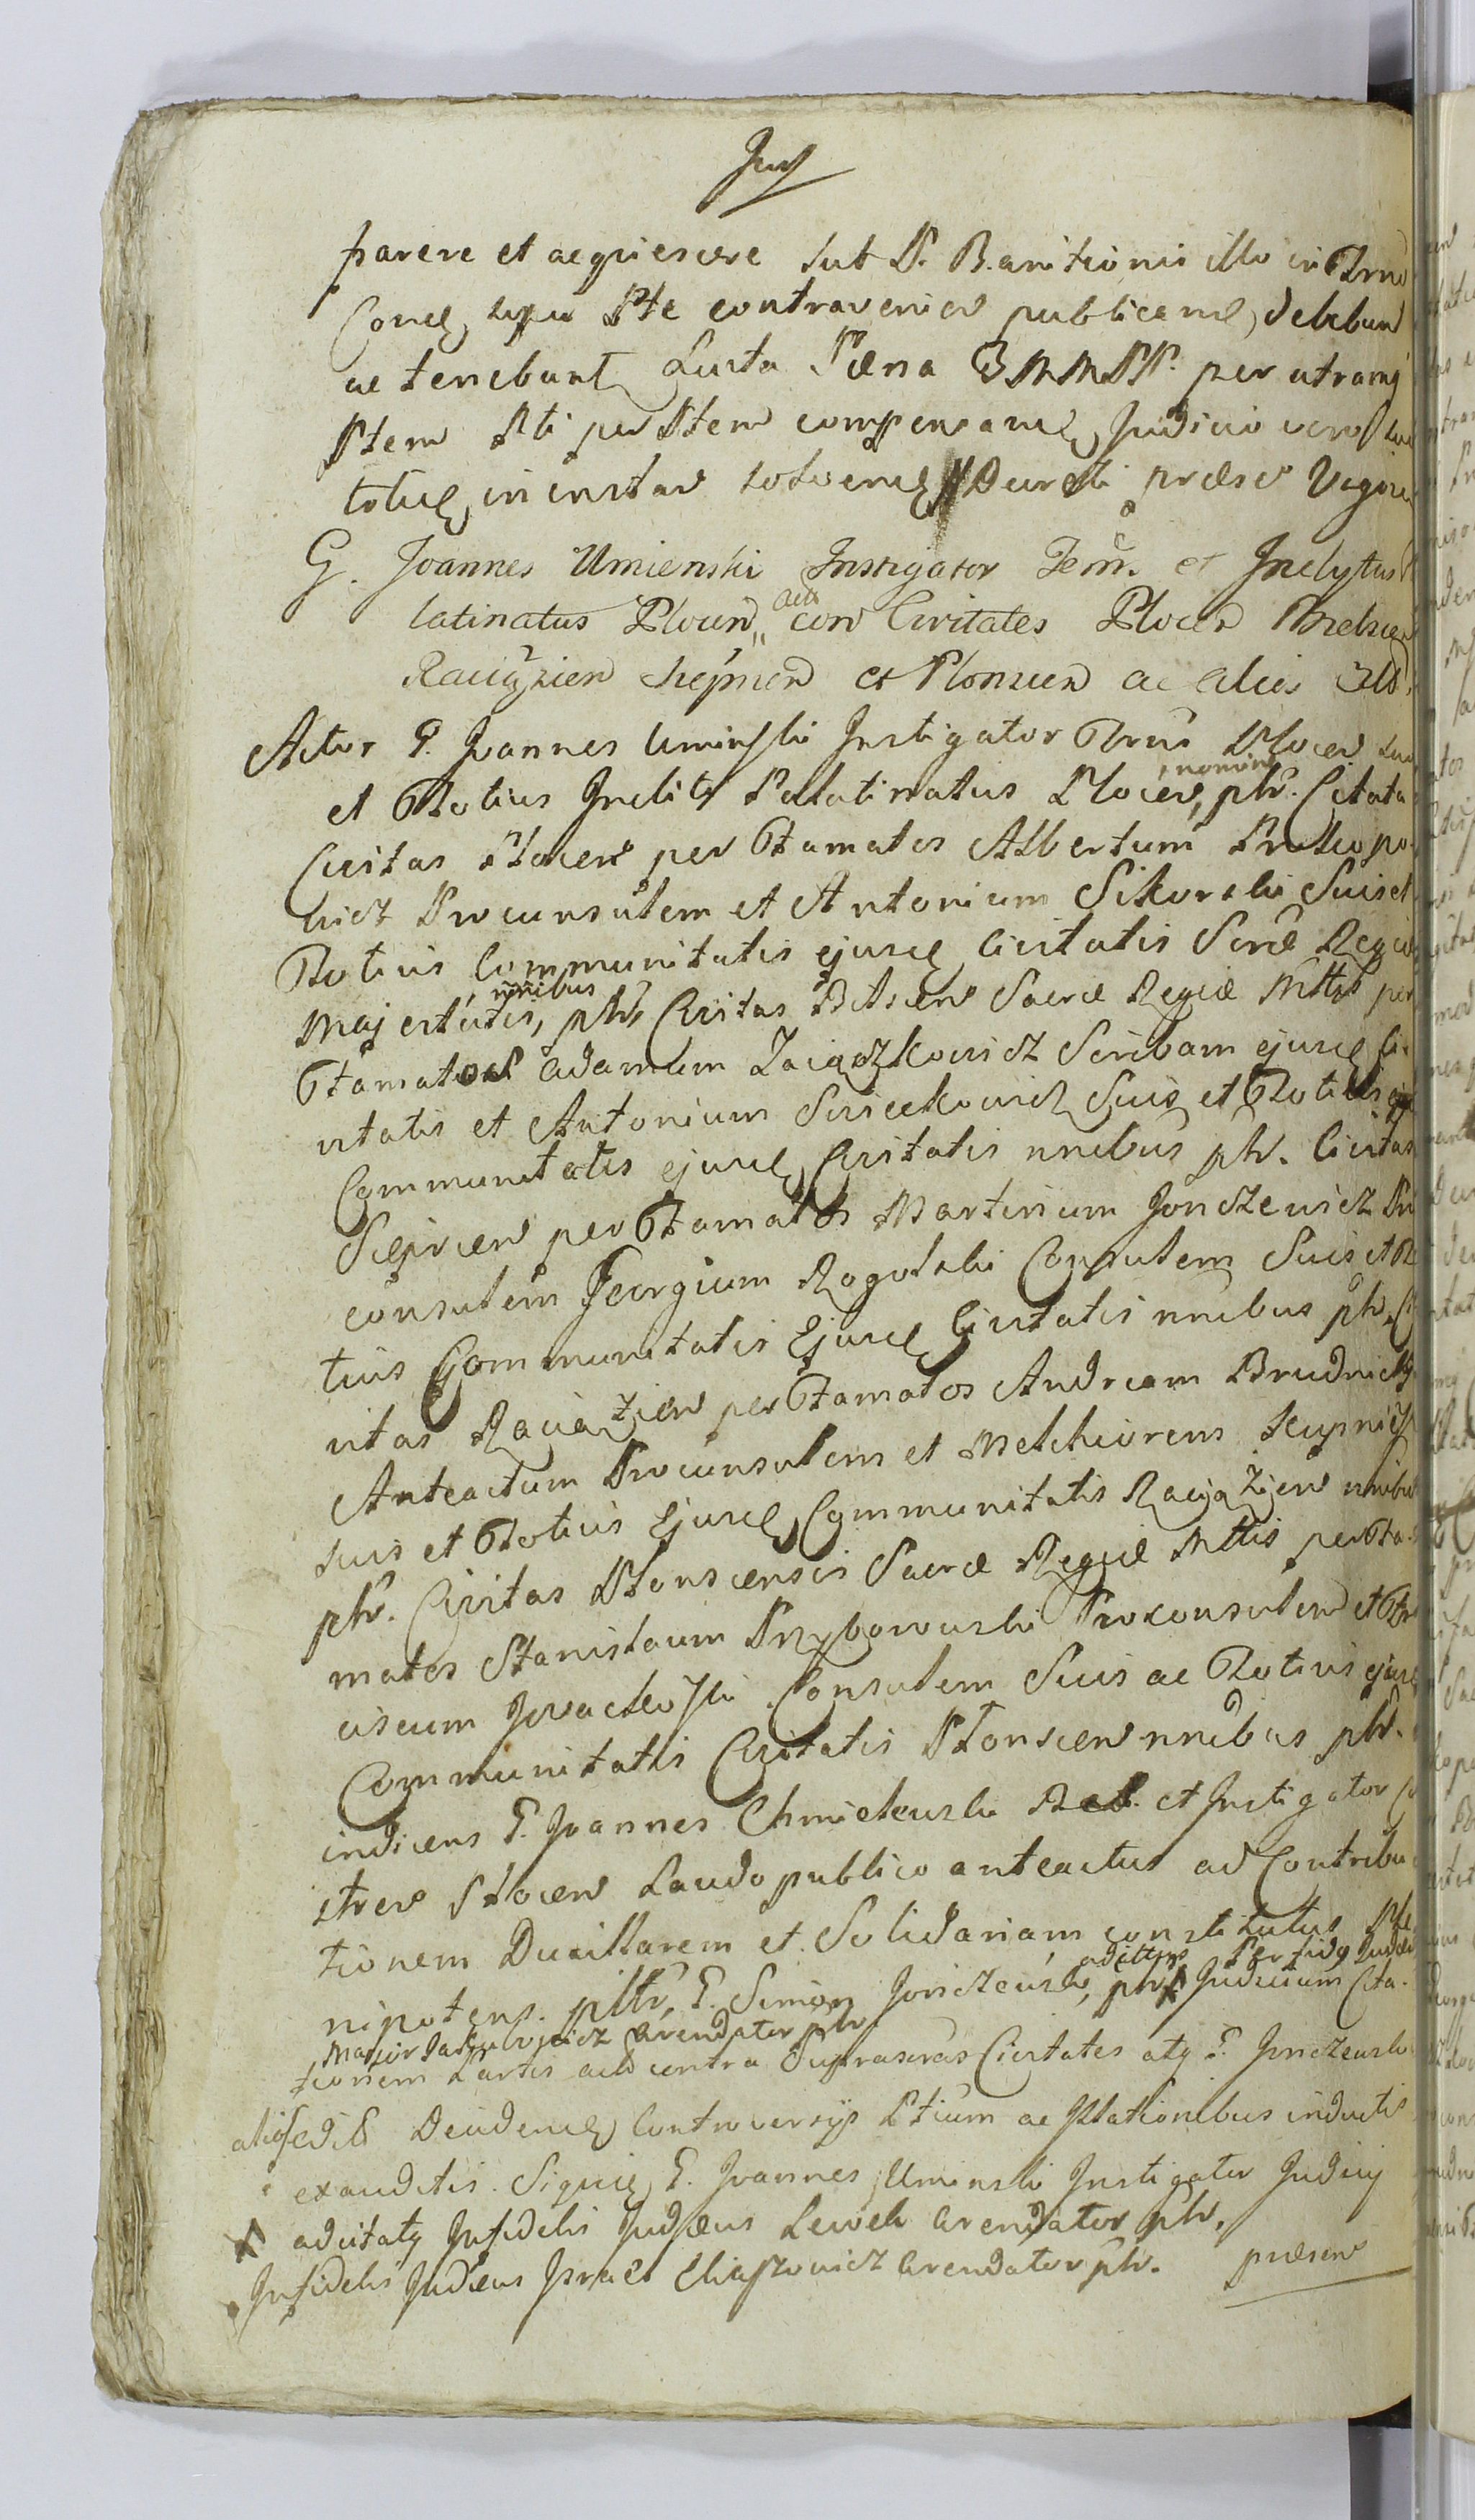 parere et acquiescere sub P. Banitionis illo in Trno
Conde, super Pte contraveniend publicand, debebun
ac tenebunt Luita Pœna 3 MMPP. per utramq
Ptem Pti per Ptem compensand, Judicio vero
totid, in instan solvend, Decreti præsen Vigore
G. Joannes Umienski Instigator Terris. et Inclytus
latinatus Plocen actu con Civitates Plocen Bielscen
Raciązien Siepricen et Plonscen ac alios
Actor G. Joannes Uminski Instigator Trris Plocen suo
et Totius Incliti Palatinatus Plocen, nomine phr. Citata
Civitas Plocen per Famatos Albertum Prokopo
wicz Proconsulem et Antonium Sikorski Suis et
Totius Communitatis ejusd Civitatis Sacræ Regiæ
Majestatis, nnibus phr, Civitas Bilscen Sacræ Regiæ Mttis per
Famatos Adamum Zaiączkowicz Scribam ejusd Ci
vitatis et Antonium Sieciekowicz Suis et Totius
Communitatis ejusd Civitatis nnibus phr. Civitas
Sieprcen per Famatos Martinum Jonczewicz Pro
consulem Georgium Rogolski Consulem Suis et To
tius Communitatis Ejusd Civitatis nnibus phr, Ci
vitas Raciązien per Famatos Andream Brudnicki
Anteactum Proconsulem et Melchiorem
suis et Totius Ejusd Communitatis Raciążien nnibus
phr. Civitas Plonscensis Sacræ Regiæ Mttis per Fa
matos Stanislaum Przyborowski Proconsulem et Fran
ciscum Consulem Suis ac Totius ejusd
Communitatis Civitatis Plonscen nnibus phr.
indicens G. Joannes Chmielewski et Instigator
Plocen Laudo publico anteactus ad Contribu
tionem Ducillarem et Solidariam constitutus Ple
nipotens. phr, G. Simon Jonczewski, adcittus phr X Perfidy Judæi
Major Jakubowicz Arendator phr. Judicium Cita
tionem Partis contra Suprascras Civitates atq G. Jonczewski
aliosq Decidend, Controversys Ptium ac Illationibus inductis
exauditis. Siquid, G. Joannes Uminski Instigator Judicij
X adcitatq Infidelis Judæus Lewek Arendator phr.
Infidelis Judæus Israel Eliaszowicz Arendator phr. præsen